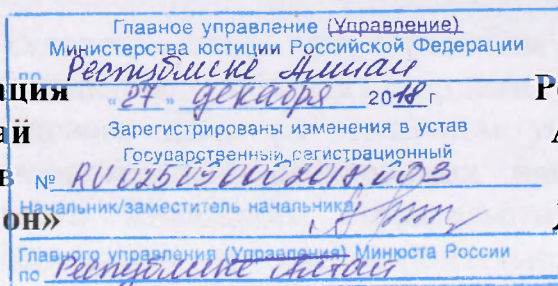 Главное управление (Управление)
Министерства юстиции Российской Федерации
по Республике Алтай
ация
«27» декабря 2018 г
ай Зарегистрированы изменения в устав
Государственный регистрационный
в № RU025090002018003
Начальник/заместитель начальника
он»
Главного управления (Управления) Минюста России
по Республике Алтай